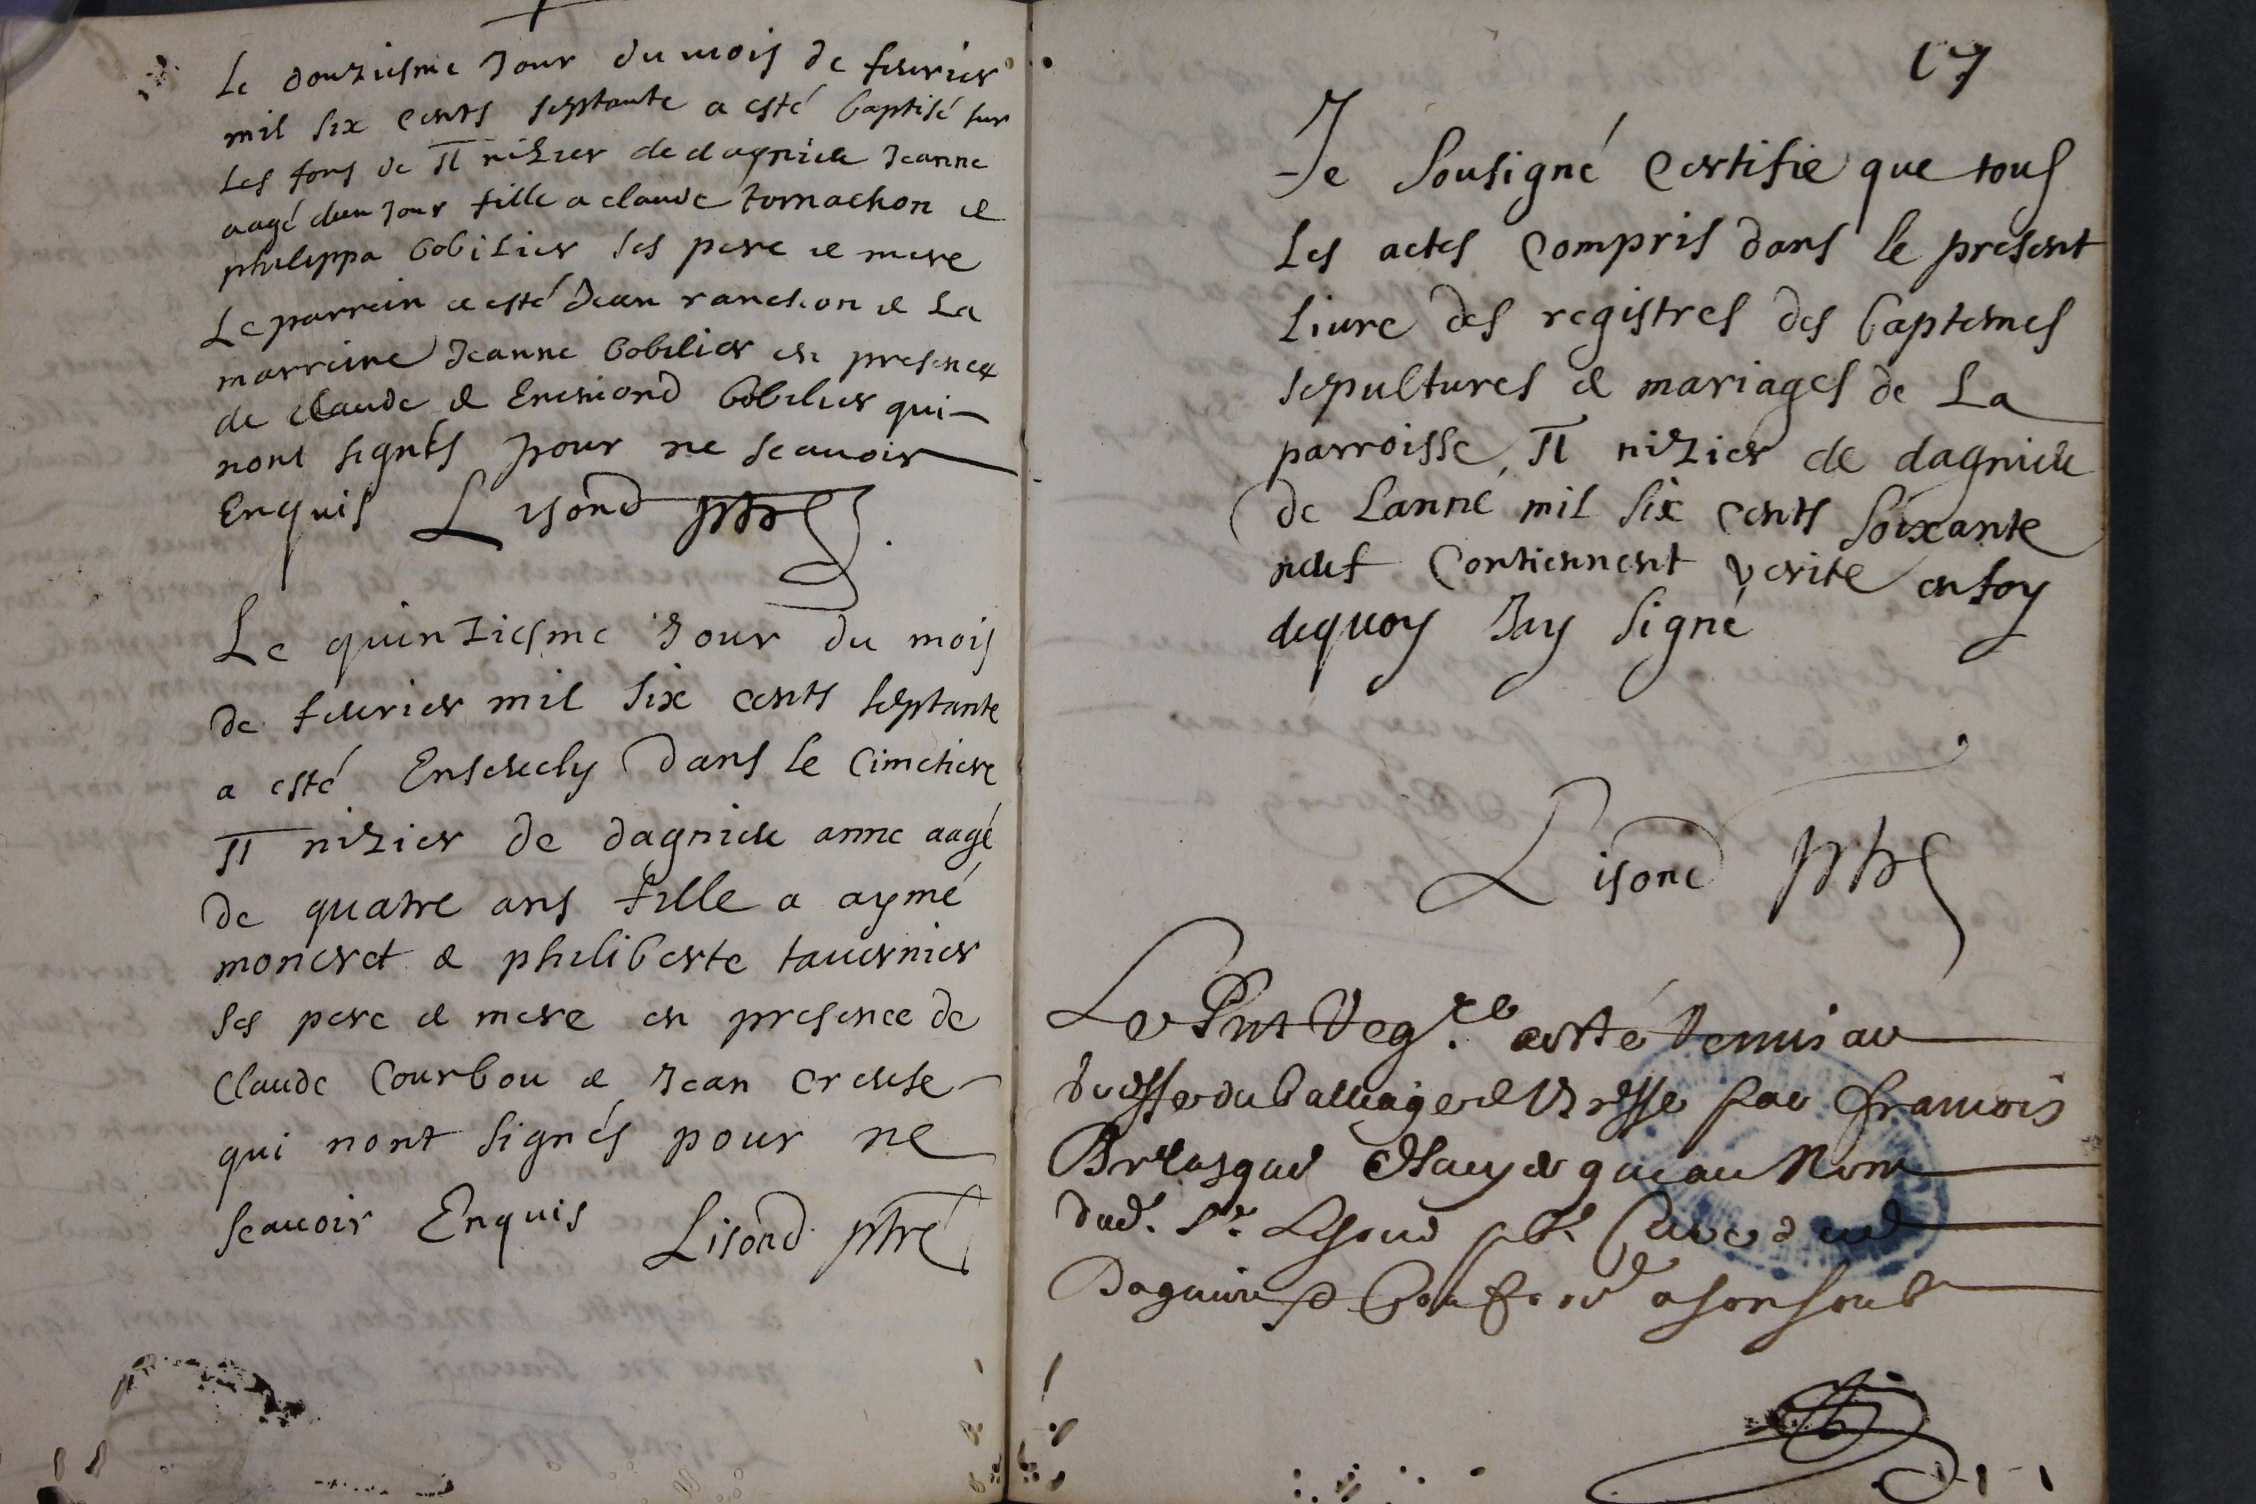 Le douziesme Jour du mois de feurier
mil six cents septante a esté baptisé sur
les fons de st nizier de dagnieu Jeanne
aagé dun Jour fille a claude tornachon &
philippa bobilier ses pere & mere
Le parrein a esté Jean ranchon & La
marreine Jeanne bobilier en presence
de claude & Enemond bobilier qui
nont signés pour ne scauoir
Enquis Lisond ptre
Le quinziesme Jour du mois
de feurier mil six cents septante
a esté Enseuely dans le cimetiere
st nizier de dagnieu anne aagé
de quatre ans fille a aymé
moneret & philiberte tauernier
ses pere & mere en presence de
claude Courbou & Jean creuse
qui nont signés pour ne
scauoir Enquis Lisond ptre
17
Je sousigné certifie que tous
les actes compris dans le present
liure des registres des baptemes
sepultures & mariages de La
parroisse st nizier de dagnieu
de Lanné mil six cents soixante
neuf contiennent verité en foy
dequoy Jay signé
Lisond ptre
Le pnt Reg.re a esté Remis au
du balliage de Bresse par francois
au Nom
dud. Sr. Lisond pbr. Curé dud
Dagnieu